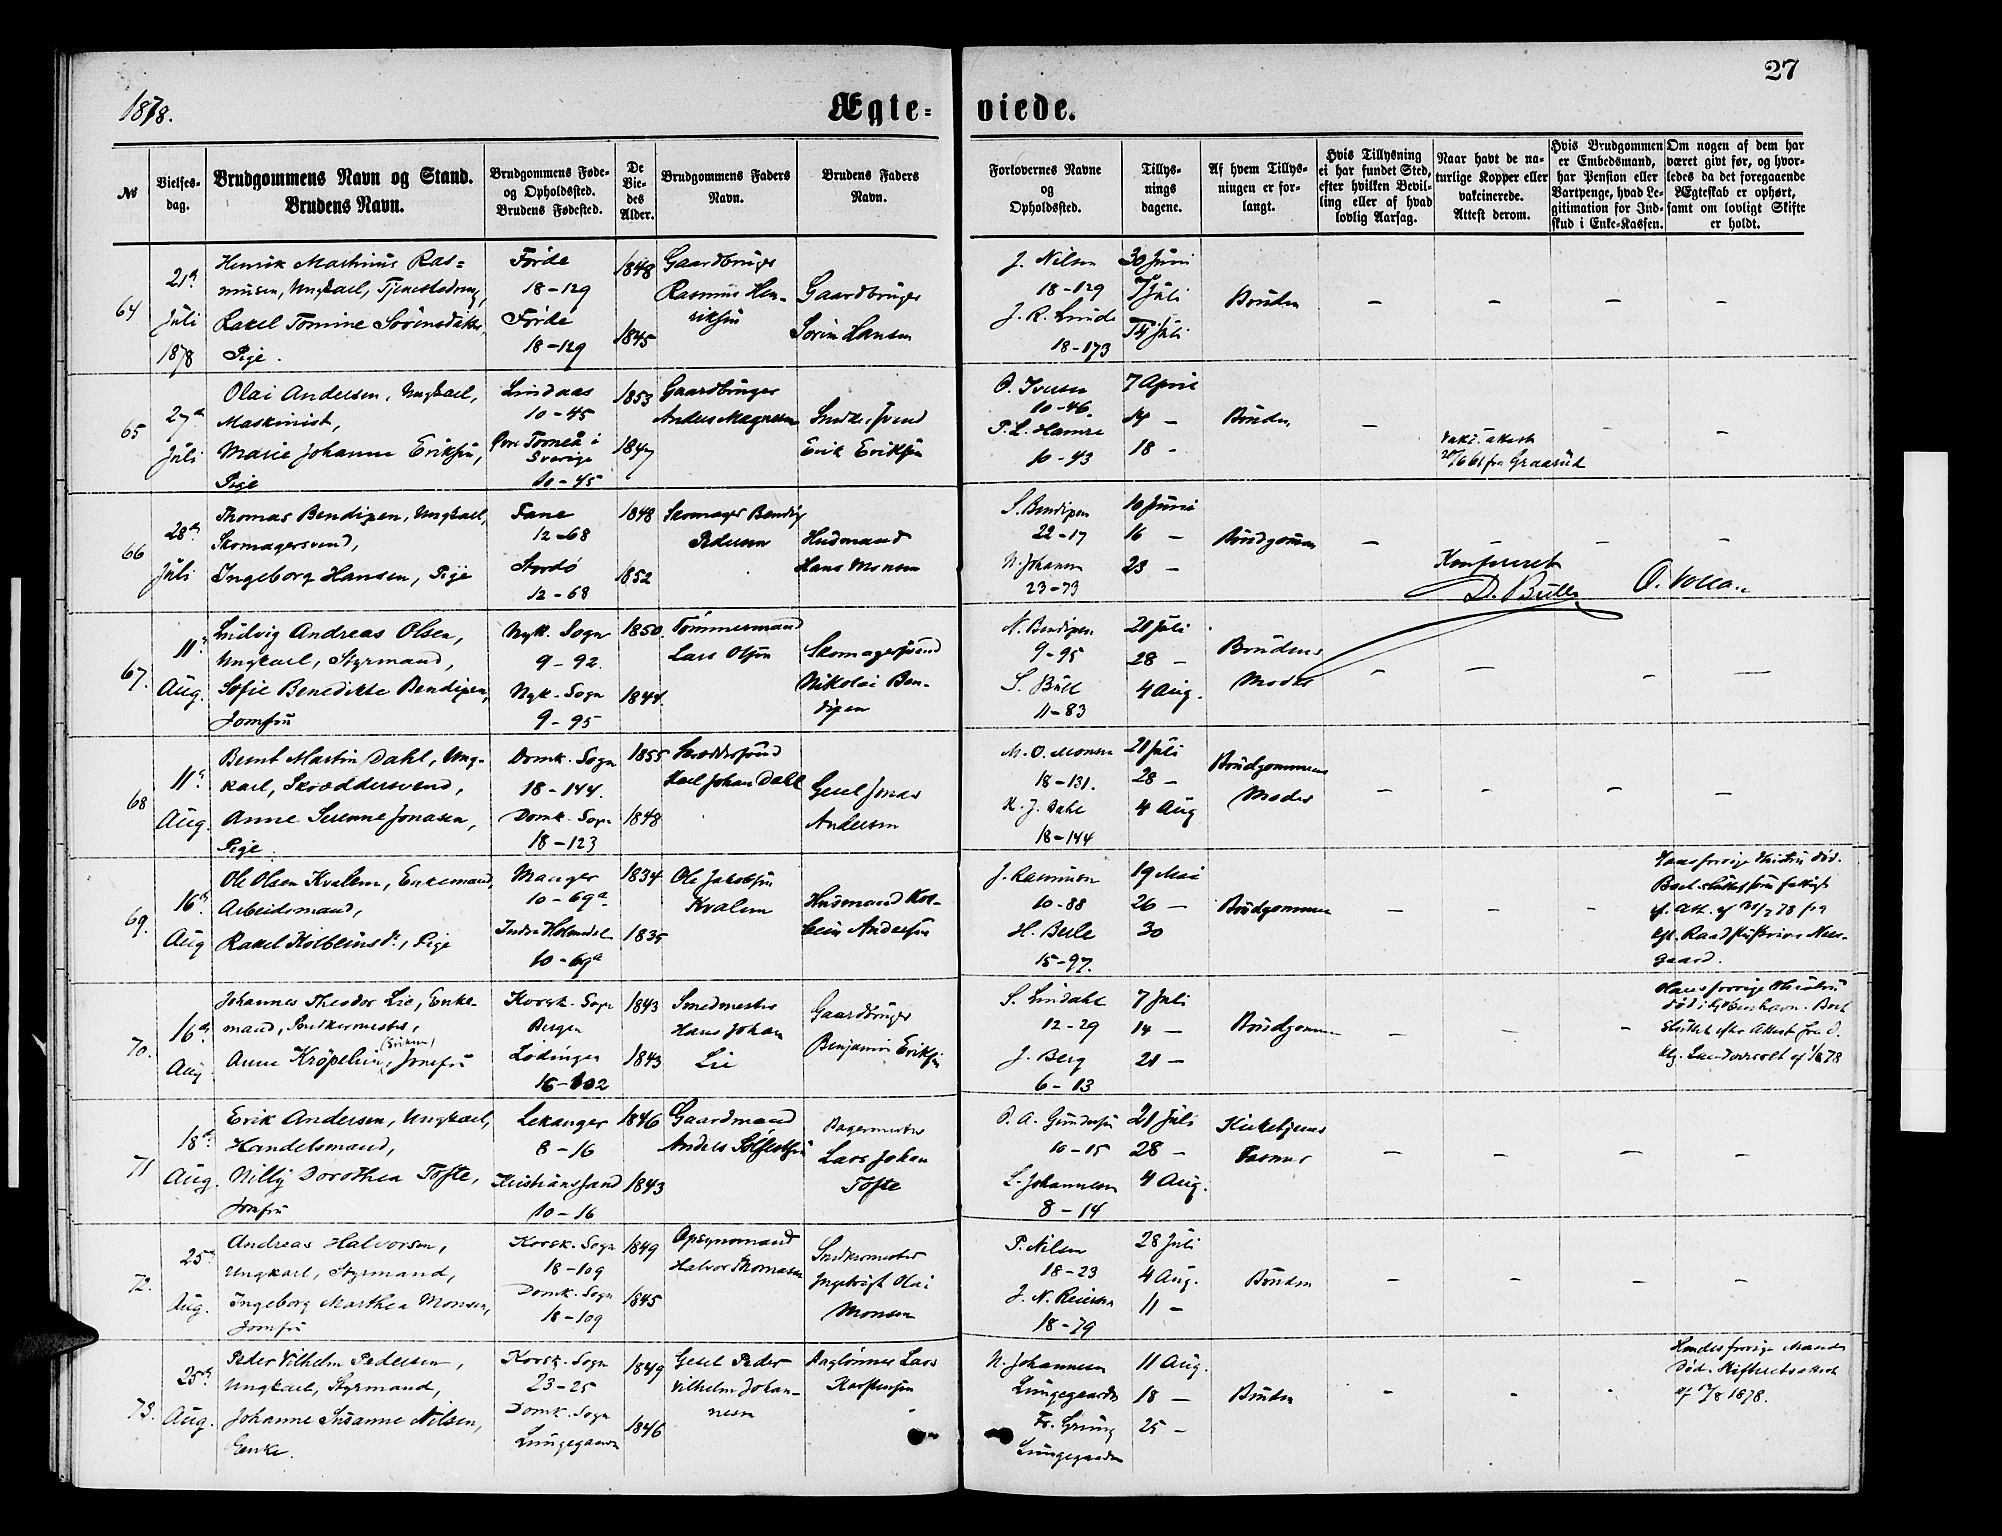 27
1878.
Ægte-
viede.
№
Vielses-
dag.
Brudgommens Navn og Stand.
Brudens Navn.
Brudgommens Føde-
og Opholdssted.
Brudens Fødested.
De
Vie-
des
Alder.
Brudgommens Faders
Navn.
Brudens Faders
Navn.
Forlovernes Navne
og
Opholdssted.
Tillys-
nings
dagene.
Af hvem Tillys-
ningen er for-
langt.
Hvis Tillysning
ei har fundet Sted,
efter hvilken Bevil-
ling eller af hvad
lovlig Aarsag.
Naar havt de na-
turlige Kopper eller
vakcinerede.
Attest derom.
Hvis Brudgommen
er Embedsmand,
har Pension eller
Vartpenge, hvad Le-
gitimation for Ind-
skud i Enke-Kassen.
Om nogen af dem har
været givt før, og hvor-
ledes da det foregaaende
Ægteskab er ophørt,
samt om lovligt Skifte
er holdt.
64
21de
Juli
1878
Henrik Martinus Ras-
musen, Ungkarl, Tjenestedreng,
Rakel Tomine Sørensdatter,
Pige.
Førde
18-129
Førde
18-129
1848
1845
Gaardbruger
Rasmus Hen-
riksen
Gaardbruger
Søren Hansen
J. Nilsen
18-129
18-173
30 Juni
7 Juli
14 Juli
Bruden
65
27de
Juli
Olai Andersen, Ungkarl,
Maskinist,
Marie Johanne Eriksen,
Pige
Lindaas
10-45
Øvre Torneå i
Sverige
10-45
1853
1847
Gaardbruger
Anders Magnesen
Snedkersvend
Erik Eriksen
O. Iversen
10-46.
P. L. Hamre
10-43
7 April
14 -
18 -
Bruden
Vakc. attest
fra Graarud
66
28de
Juli
Thomas Bendixen, Ungkarl,
Skomagersvend,
Ingeborg Hansen, Pige
Fane
12-68
Stordø
12-68
1848
1852
Skomager Bendix
Pedersen
Husmand
Hans Monsen
S. Bendixen
22-17
N. Johansen
23-73
10 Juni
16 -
23 -
Brudgommen
Konfereret
D. Bull
67.
11te
Aug.
Ludvig Andreas Olsen,
Ungkarl, Styrmand,
Sofie Benedikte Bendixen,
Jomfru
Nyk. Sogn
9-92.
Nyk. Sogn
9-95
1850.
1844.
Tømmermand
Lars Olsen
Skomagersvend
Nikolai Ben-
dixen
N. Bendixen
9-95
S. Bull
11-83
21 Juli
28 -
4 Aug.
Brudens
Moder
68
11te
Aug.
Bernt Martin Dahl, Ung-
karl, Skræddersvend,
Anne Serenne Jonasen,
Pige.
Domk. Sogn
18-144.
Domk. Sogn
18-123
1855
1848
Skræddersvend
Karl Johan Dahl
Gesel Jonas
Andersen
M. O. Monsen
18-131.
K. J. Dahl
18-144
21 Juli
28 -
4 Aug
Brudgommens
Moder
69.
16de
Aug
Ole Olsen Kvalem, Enkemand,
Arbeidsmand,
Rakel Kolbeinsdr., Pige
Manger
10-69a
Indre Holmedal
10-69a
1834
1835
Ole Jakobsen
Kvalem
Husmand Kol-
bein Andersen
J. Rasmusen
10-88
H. Beile
15-97.
19 Mai
26 -
30
Brudgommen
Hans forrige Hustru død.
78 fra
gaard.
70.
16de
Aug
Johannes Theodor Lie, Enke-
mand, Snedkermester,
(Eriksen)
Anne Krøpelin, Jomfru
Korsk. Sogn
Bergen
Lødingen
16-102
1843
1843
Smedmester
Hans Johan
Lie
Gaardbruger
Benjamin Eriksen
S. Lindahl
12-29
J. Berg
6-13
7 Juli
14 -
21 -
Brudgommen
Hans forrige Hustru
død i Kjøbenhavn. Boet
sluttet efter Attest fra d.
71
18de
Aug.
Erik Andersen, Ungkarl,
Handelsmand,
Nilly Dorothea Tofte,
Jomfru
Lekanger
8-16
Kristianssand
10-16
1846
1843
Gaardmand
Anders Sølfestsen
Bagermester
Lars Johan
Tofte
O. A. Gundersen
10-15
L. Johannesen
8-14
21 Juli
28 -
4 Aug.
Kirketjener
Tasmer
72.
25de
Aug.
Andreas Halvorsen,
Ungkarl, Styrmand,
Ingeborg Marthea Monsen,
Jomfru
Korsk. Sogn
18-109
Domk. Sogn
18-109
1849
1845
Opsynsmand
Halvor Thomasen
Snedkermester
Ingebrigt Olai
Monsen
P. Nilsen
18-23
J. N. Reiersen
18-79
28 Juli
4 Aug.
11 -
Bruden
73.
25de
Aug.
Peder Vilhelm Pedersen,
Ungkarl, Styrmand,
Johanne Susanne Nilsen,
Enke.
Korsk. Sogn
23-25
Domk. Sogn
Lungegaarden
1849
1846
Gesel Peder
Vilhelm Johan-
nesen
Daglønner Lars
Karstensen
N. Johannesen
Lungegaarden
Fr. Grung
Lungegaarden
11 Aug.
18 -
25 -
Bruden
Hendes forrige Mand
død. Skifteretsattest
1878.